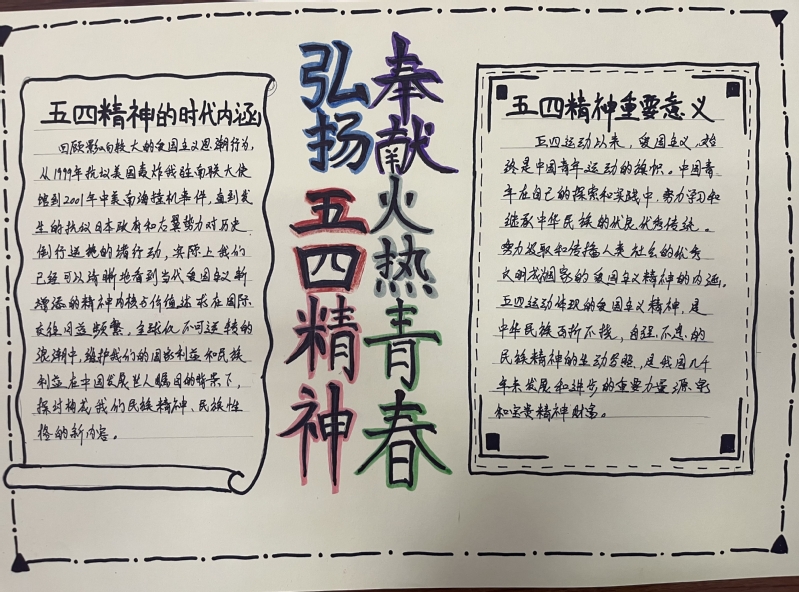 五四精神的时代内涵
回顾影响较大的爱国主义思潮行为,
从1999年抗议美国轰炸我驻南联大使
馆到2001年中美南海撞机事件,直到发
生的抗议日本政府和右翼势力对历史
倒行逆施的诸行动,实际上我们
已经可以清晰地看到当代爱国主义新
增添的精神内核与价值追求在国际
交往日益频繁,全球化不可逆转的
浪潮中,维护我们的国家利益和民族
利益在中国发展世人瞩目的背景下,
探讨构成我们民族精神、民族性
格的新内容。
弘扬五四精神
奉献火热青春
五四精神重要意义
五四运动以来,爱国主义,始
终是中国青年运动的旗帜。中国青
年在自己的探索和实践中,努力学习和
继承中华民族的优良优秀传统。
努力汲取和传播人类社会的优秀
文明成国家的爱国主义精神的内涵。
五四运动体现的爱国主义精神,是
中华民族百折不挠,自强不息的
民族精神的生动写照,是我国几千
年来发展和进步的重要力量源泉
和宝贵精神财富。